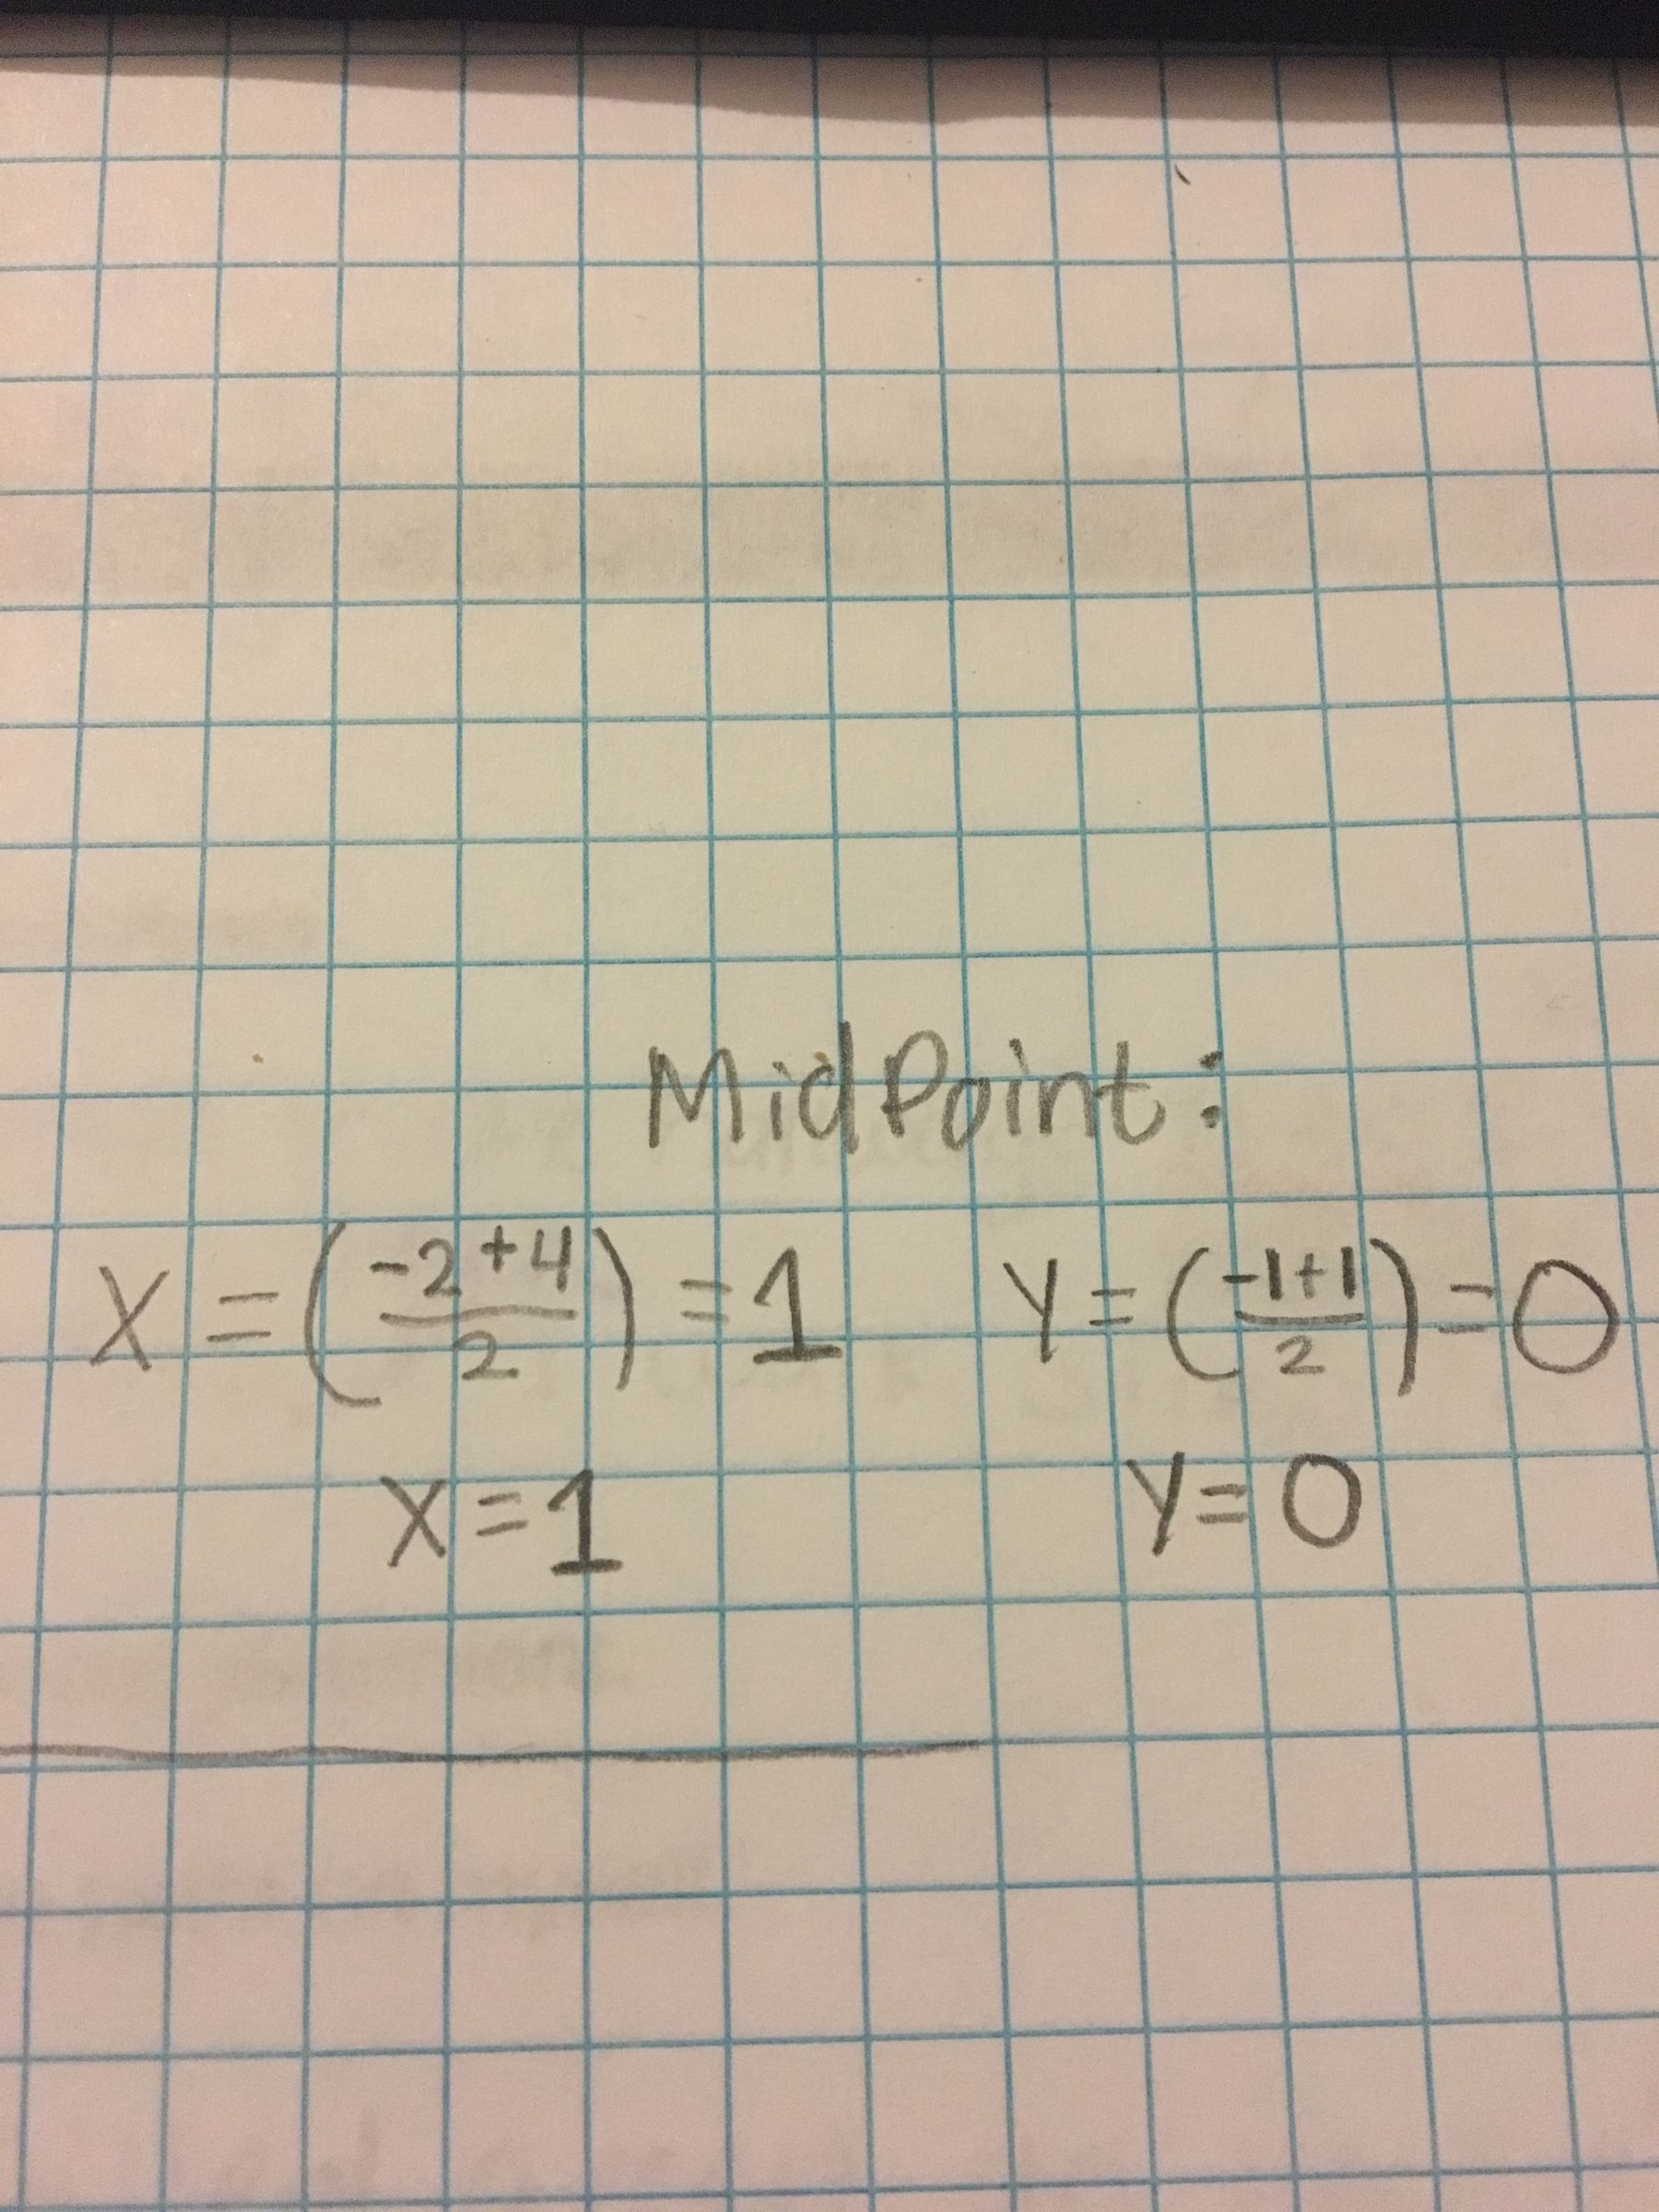 MidPoint:
X = (-2+4/2) = 1 Y = (-1+1/2) = 0
X = 1 Y = 0